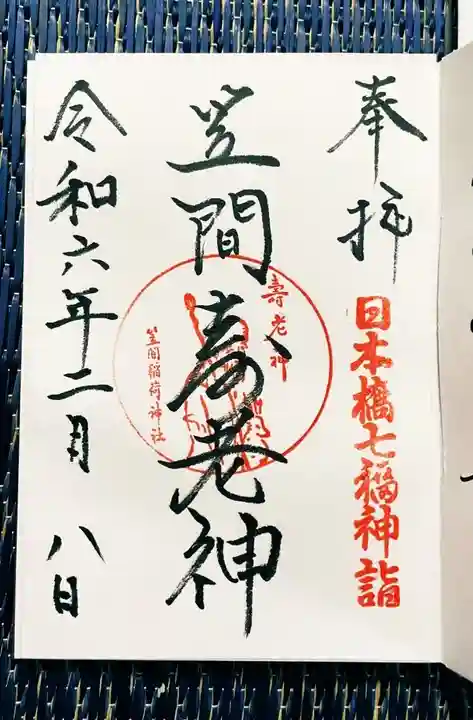 奉拝
日本橋七福神詣
笠間寿老神
壽老神
笠間稲荷神社
令和六年二月八日